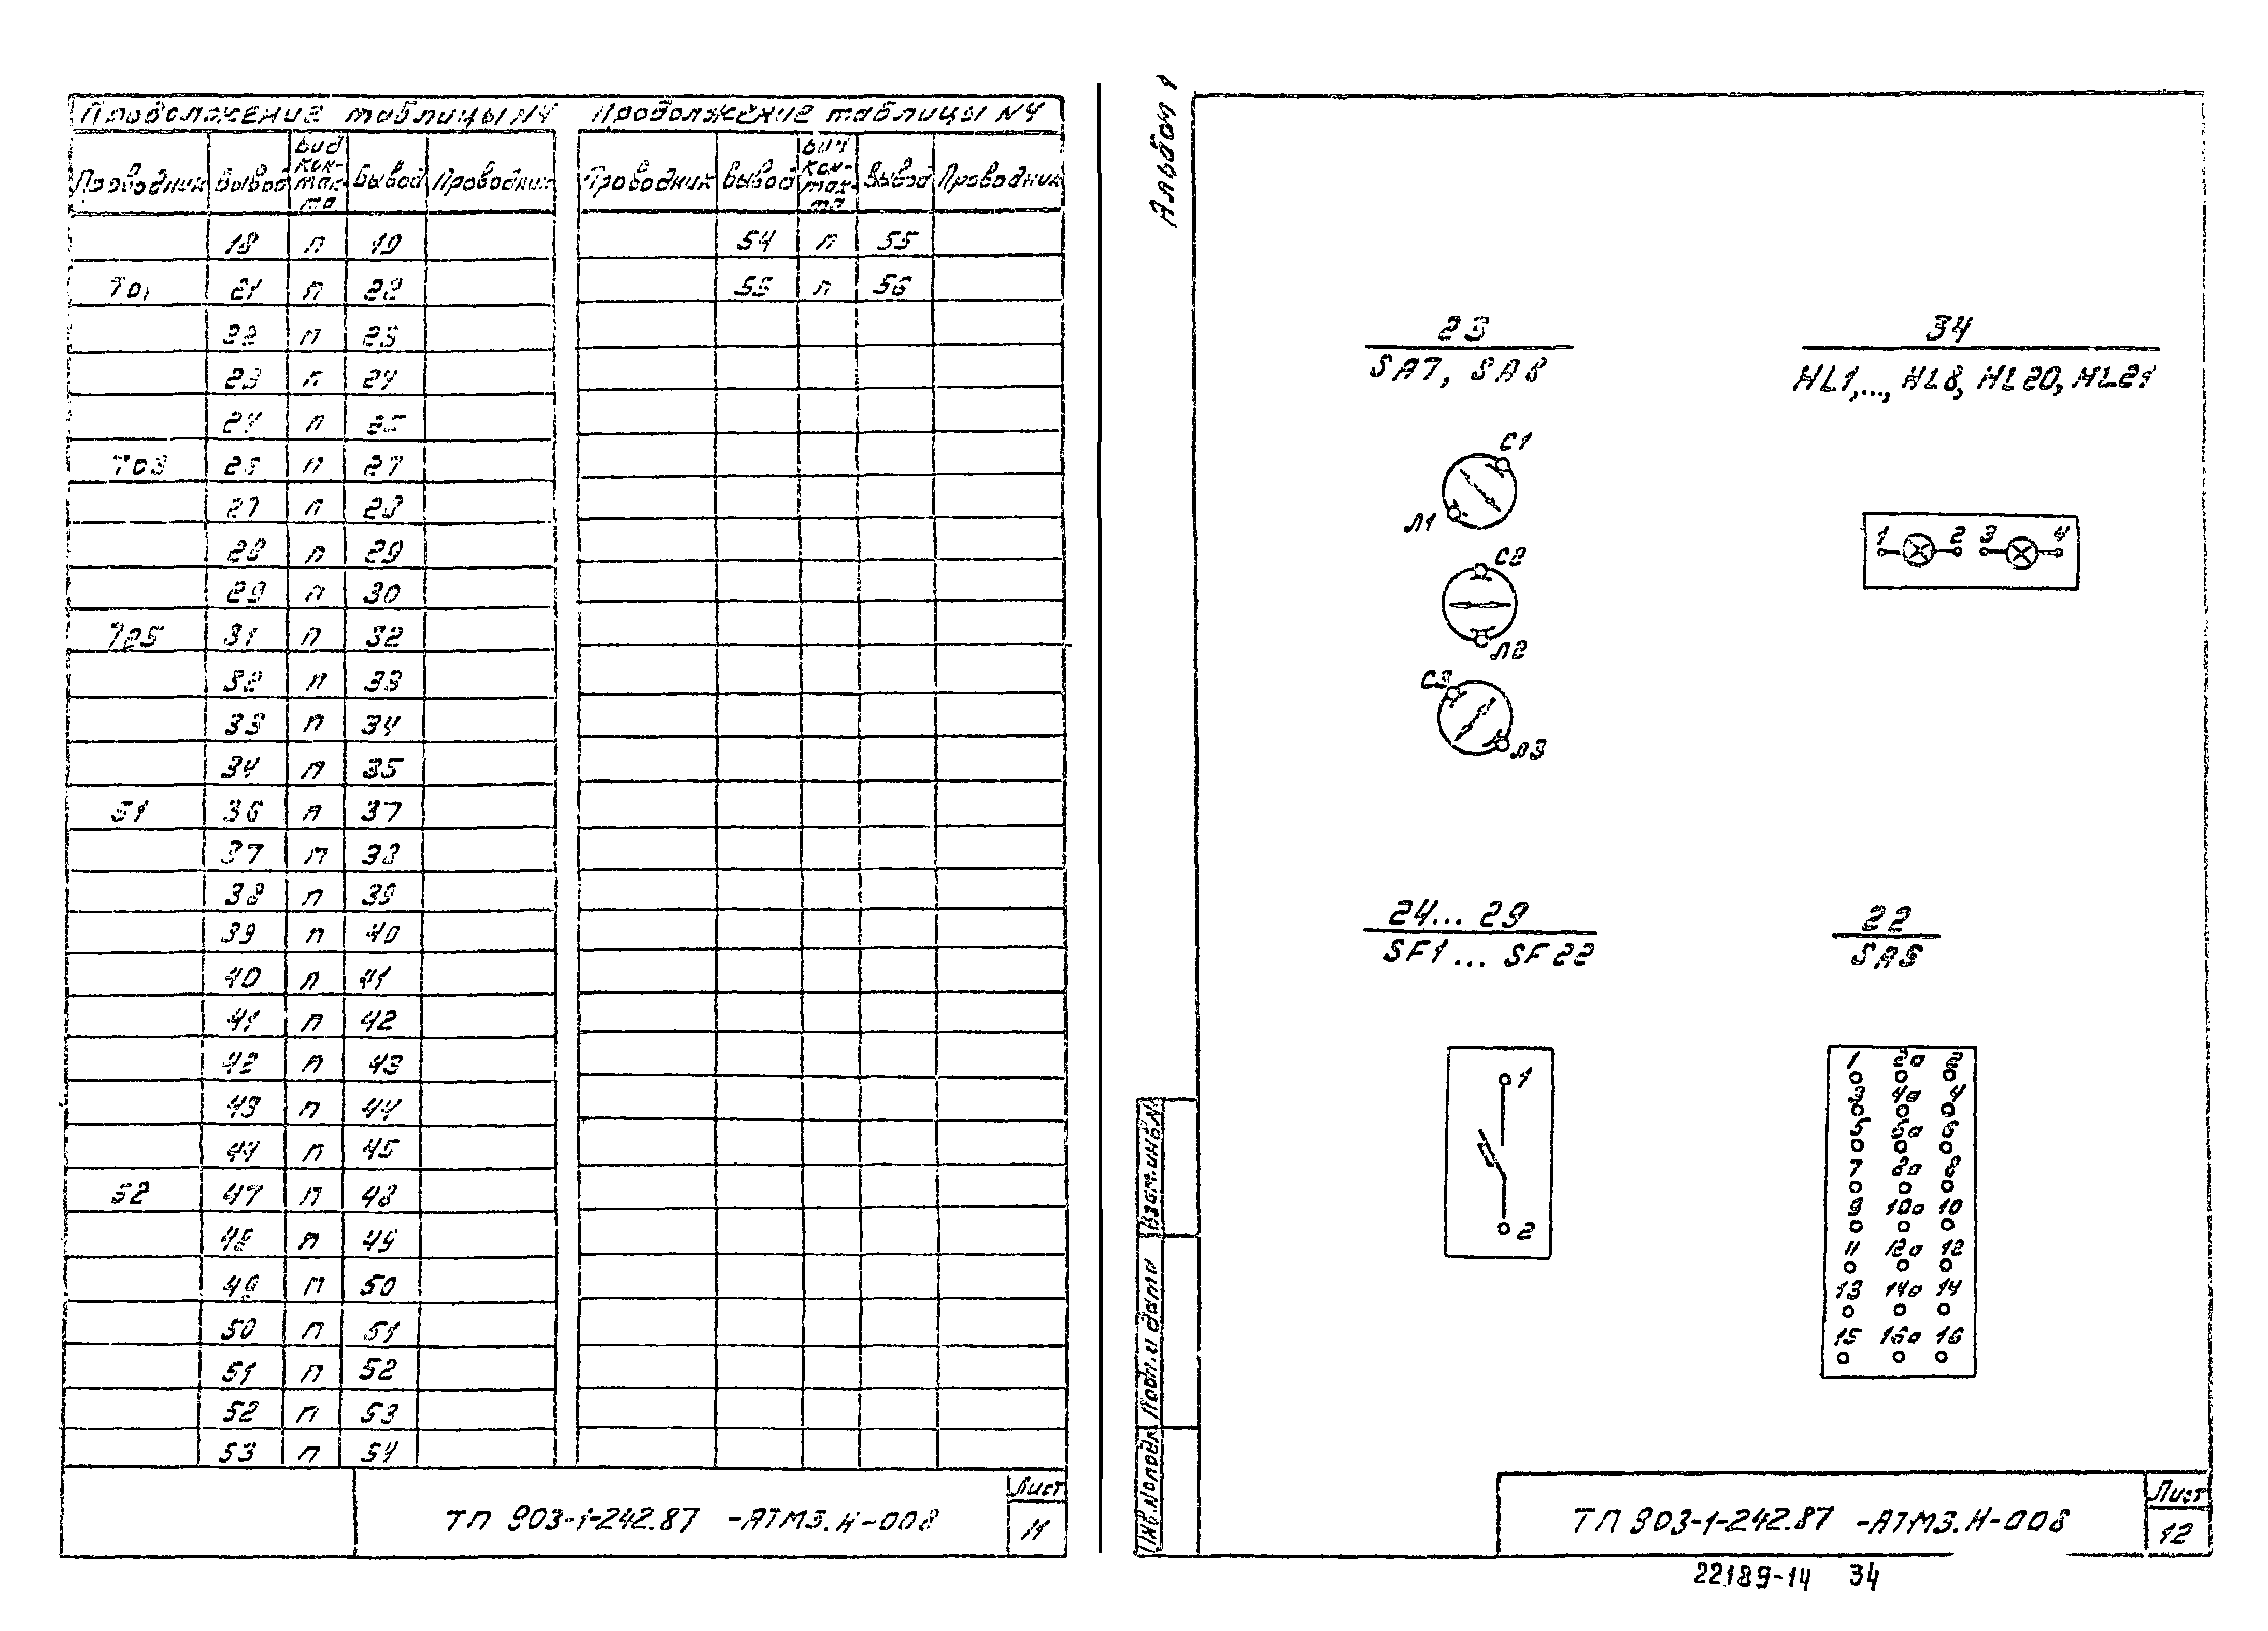 Продолжение таблицы N4
Проводник Вывод Вид контакта Вывод Проводник
18 п 19
701 21 п 22
22 п 23
23 п 24
24 п 25
703 26 п 27
27 п 28
28 п 29
29 п 30
725 31 п 32
32 п 33
33 п 34
34 п 35
51 36 п 37
37 п 38
38 п 39
39 п 40
40 п 41
41 п 42
42 п 43
43 п 44
44 п 45
52 47 п 48
48 п 49
49 п 50
50 п 51
51 п 52
52 п 53
53 п 54
Продолжение таблицы N4
Проводник Вывод Вид контакта Вывод Проводник
54 п 55
55 п 56
ТП 903-1-242.87 -АТМ3.Н-008
Лист
11
Альбом 1
23
SA7, SA8
С1
Л1
С2
Л2
С3
Л3
34
HL1,..., HL8, HL20, HL21
1 2 3 4
24... 29
SF1... SF22
1
2
22
1 2а 2
3 4а 4
5 6а 6
7 8а 8
9 10а 10
11 12а 12
13 14а 14
15 16а 16
Взам.инв.N
Подп.и дата
Инв.Nподл
ТП 903-1-242.87 -АТМ3.Н-008
Лист
12
22189-14 34